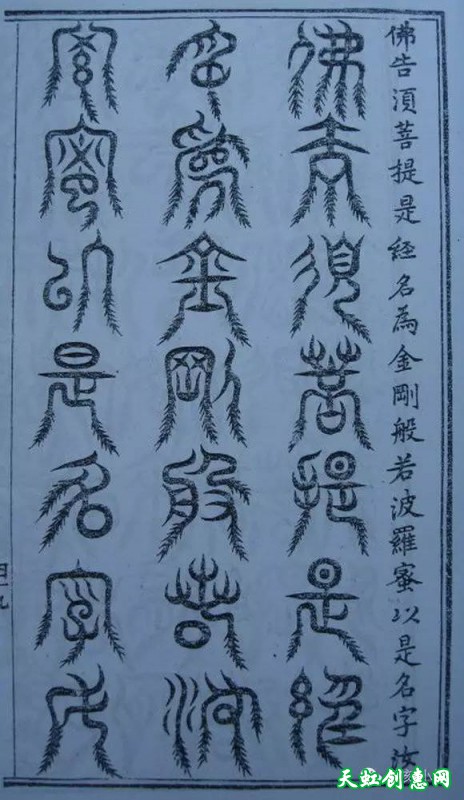 佛告湏菩提是經名為金剛般若波羅蜜以是名字汝
佛告須菩提是經
名為金剛般若波
羅蜜以是名字汝
天虹创意网